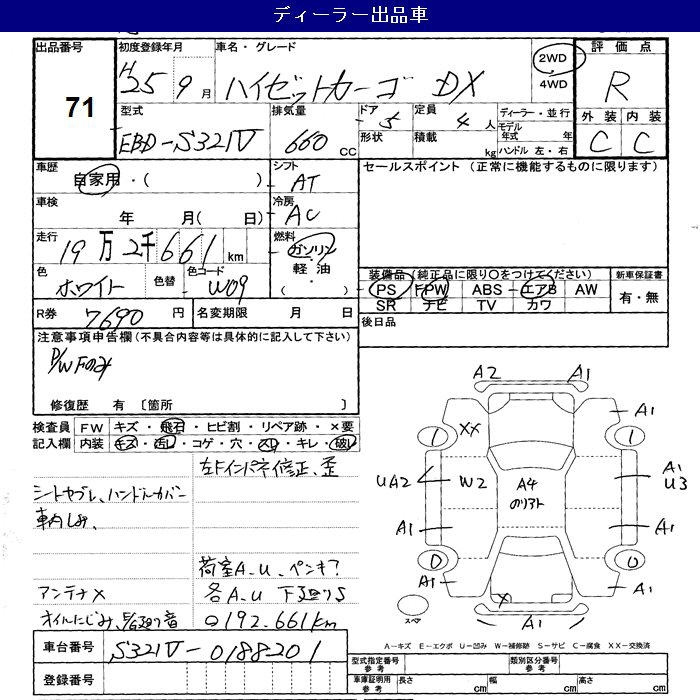 ディーラー出品車
出品番号 71
初度登録年月 H25年9月
車名・グレード ハイゼットカーゴ DX
2WD 4WD
評価点 R
型式 EBD-S321V
排気量 660 CC
ドア 5 形状
定員 4 人 積載 kg
ディーラー・並行 モデル年式 年 ハンドル 左・右
外装 内装 C C
車歴 自家用・( )
シフト AT
セールスポイント (正常に機能するものに限ります)
車検 年 月( 日)
冷房 AC
走行 19万2千661km
燃料 ガソリン・軽油・( )
色 ホワイト 色替 色コード W09
装備品(純正品に限り○をつけてください) 新車保証書
PS FPW ABS エアB AW 有・無
SR ナビ TV カワ
R券 7690円 名変期限 月 日
後日品
注意事項申告欄(不具合内容等は具体的に記入して下さい)
P/W Fのみ
修復歴 有 〔箇所 〕
検査員 FW キズ・飛石・ヒビ割・リペア跡・×要
記入欄 内装 キズ・汚レ・コゲ・穴・スレ・キレ・破レ
左Fインパネ修正、歪
シートヤブレ、ハンドルカバー
車内しみ、
荷室A.U、ペンキ?
アンテナX 各A.U 下廻りS
オイルにじみ、 音 192.661km
A2 A1
XX A1
UA2 W2 A4 A1 U3
のりアト
A1 A1
A1 X A1
A1
スペア
A－キズ E－エクボ U－凹み W－補修跡 S－サビ C－腐食 XX－交換済
車台番号 S321V-0188201
登録番号
型式指定番号 参考 類別区分番号 参考
車庫証明用 参考 長さ cm 幅 cm 高さ cm